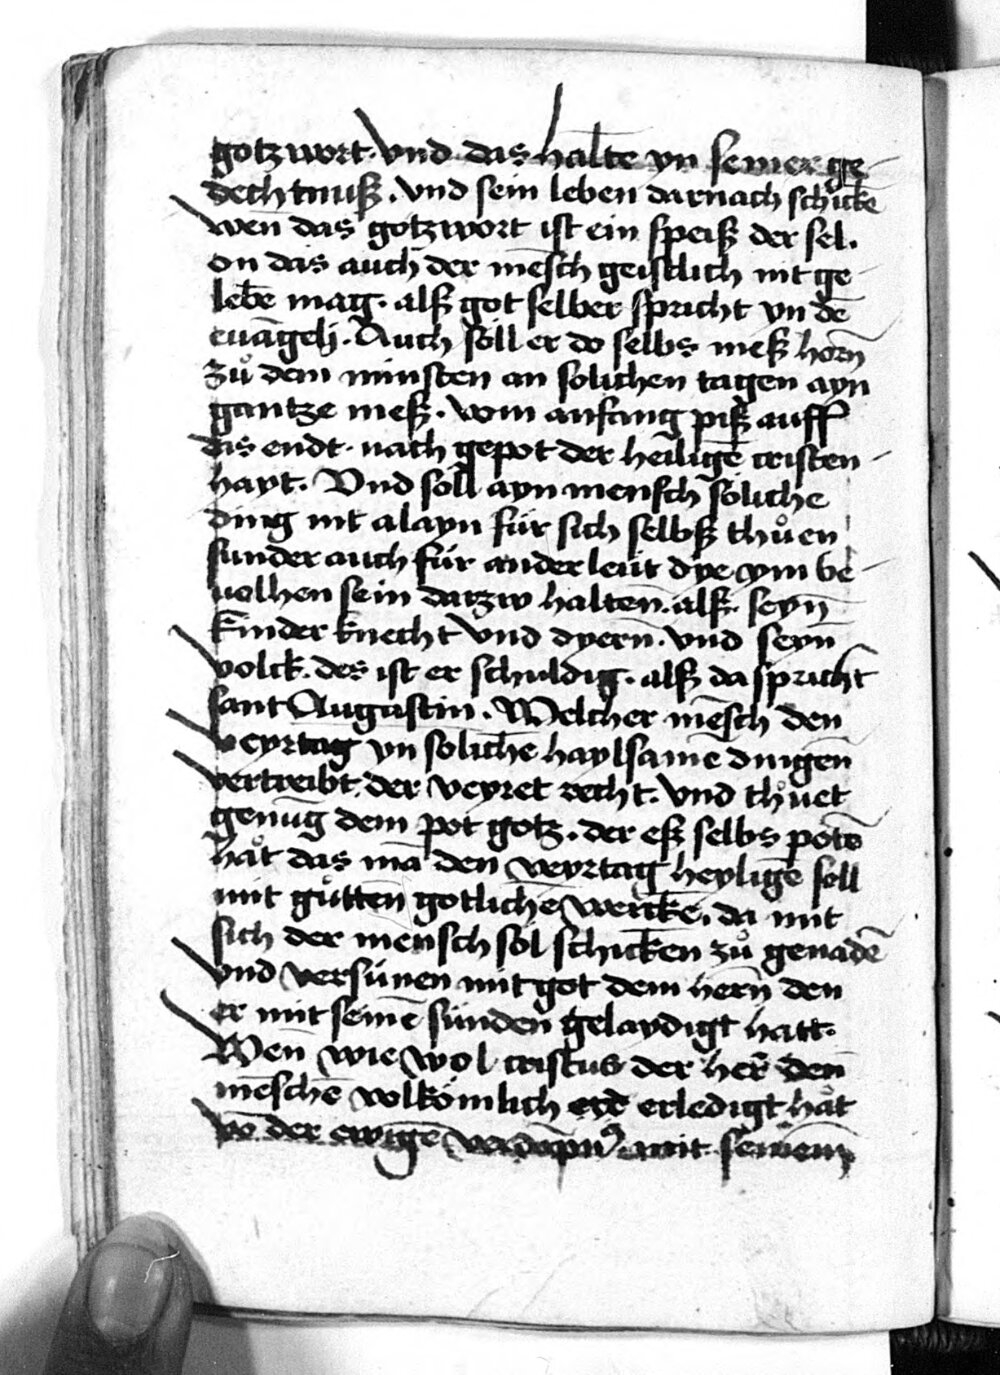 gotzwort. vnd das halte yn seiner ge-
dechtnuß. vnd sein leben darnach schickē
wen̄ das gotzwort ist ein speiß der sel.
on das auch der mēsch geistlich nit ge-
lebē mag. alß got selber spricht yn dē
euāgelj. Auch soll er do selbs meß horn̄
zů dem minsten an solichen tagen ayn
gantze meß. vom anfang piß auff
das endt. nach gepot der heiligē cristen-
hayt. Vnd soll ayn mensch soliche
ding nit alayn für sich selbß thůen
sunder auch für ander leüt dye ym be-
uolhen sein darzw halten̄. alß. seyn̄
kinder knecht vnd dyern̄. vnd seyn̄
volck. des ist er schuldig. alß da spricht
sant Augustin. Welcher mēsch den
veyrtag yn solichē haylsamē dingen̄
vertreibt der veyret recht. vnd thůet
genūg dem pot gotz. der eß selbs potē
håt das mā den veyrtag heyligē soll
mit gůtten̄ gotlichē werckē. da mit
sich der mensch sol schicken zů genadē
vnd versünen mit got dem hern̄ den
er mit seinē sünden gelaydigt hatt.
Wen̄ wie wol cristus der her̄ den̄
mēschē volkōmlich erledigt håt
vō der ewigē mit seinem̄